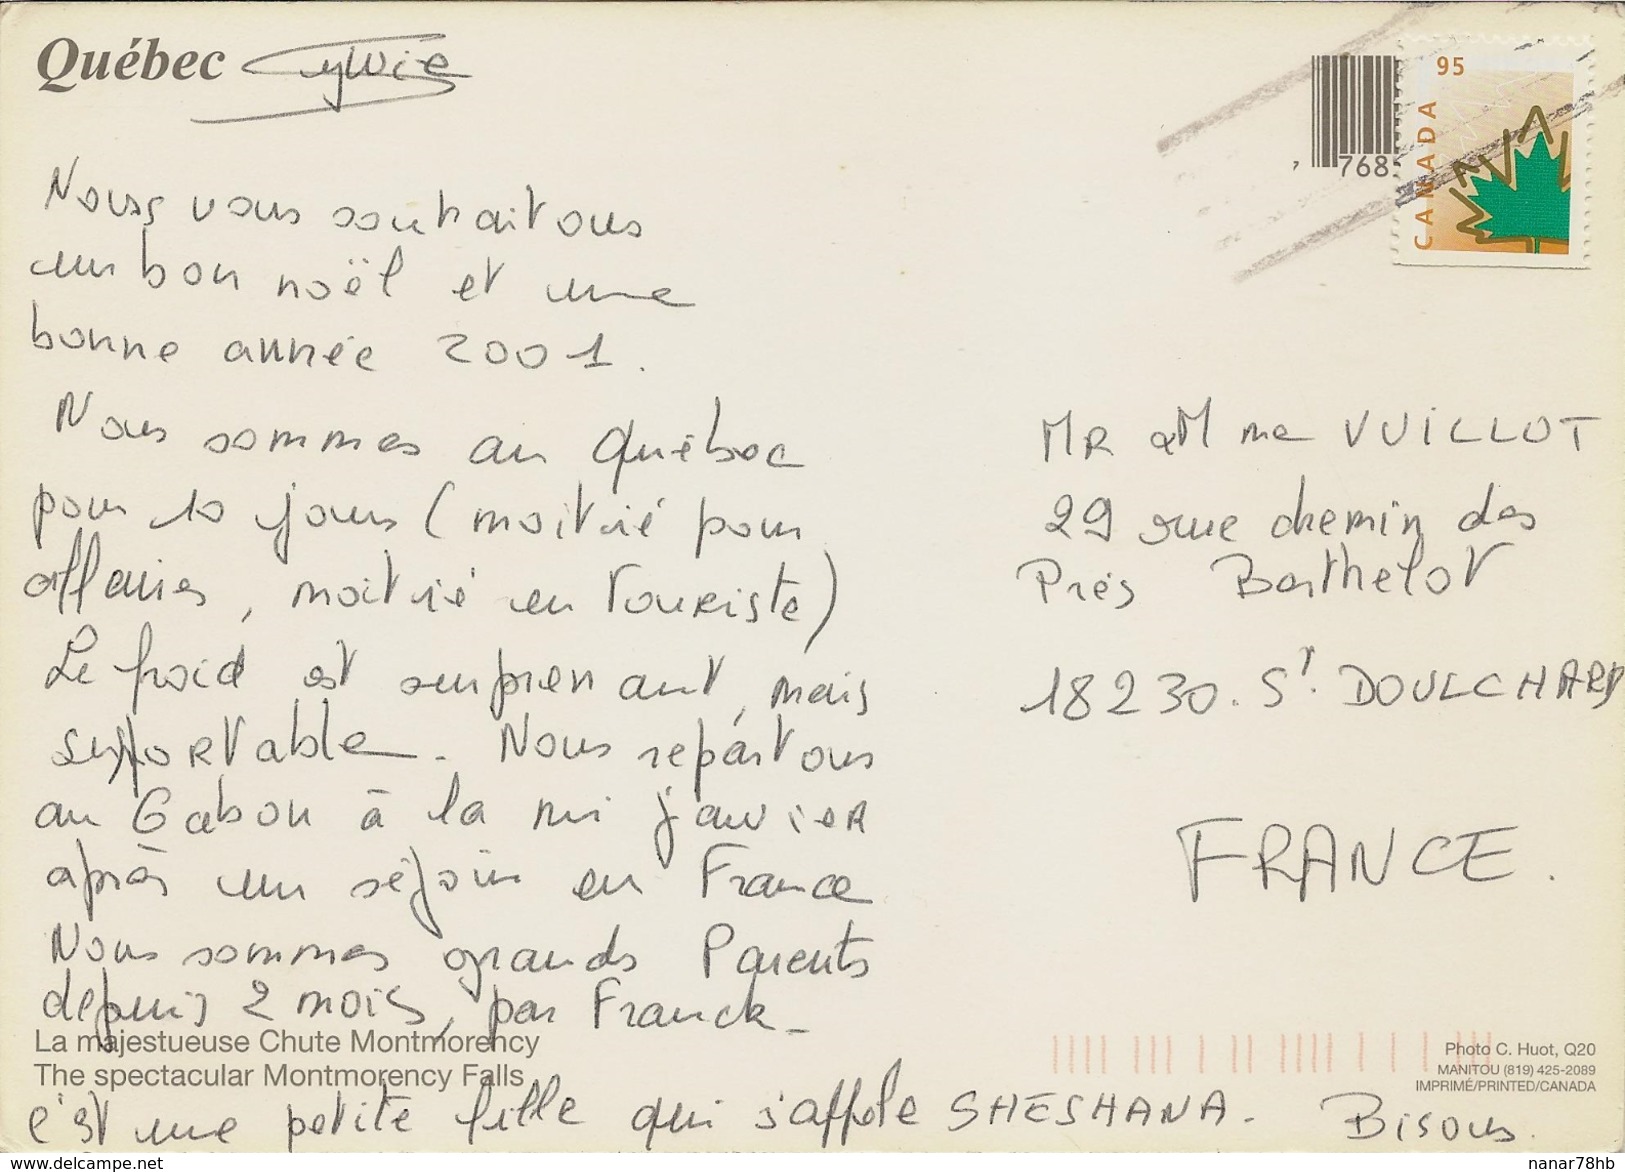 Québec Sylvie
95
CANADA
768
Nous vous souhaitous
un bon noël et une
bonne année 2001.
Nous sommes au Québec
pour 10 jours (moitié pour
affaires, moitié en Touriste)
Le froid est surprenant, mais
supportable. Nous repartous
au Gabon à la mi janvier
après un séjour en France
Nous sommes grands Parents
depuis 2 mois, par Franck_
La majestueuse Chute Montmorency
The spectacular Montmorency Falls
c'est une petite fille qui s'appele SHESHANA. Bisous.
MR et Mme VUILLOT
29 rue chemin des
Prés Barthelot
18230. St. DOULCHARD
FRANCE.
Photo C. Huot, Q20
MANITOU (819) 425-2089
IMPRIMÉ/PRINTED/CANADA
nanar78hb